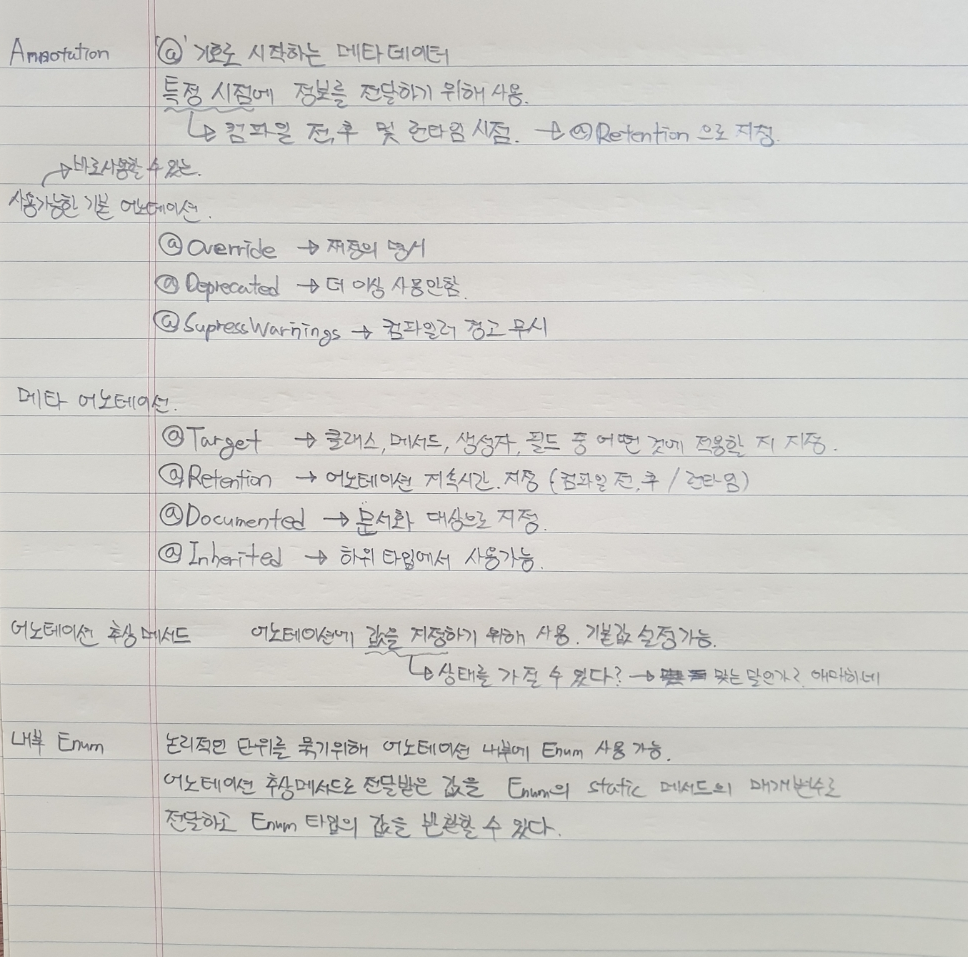 Annotation '@' 기호로 시작하는 메타데이터
특정 시점에 정보를 전달하기 위해 사용.
↳ 컴파일 전,후 및 런타임 시점. → @Retention 으로 지정.
→ 바로사용할 수 있는.
사용가능한 기본 어노테이션.
@Override → 재정의 명시
@Deprecated → 더 이상 사용안함.
@SupressWarnings → 컴파일러 경고 무시
메타 어노테이션.
@Target → 클래스, 메서드, 생성자, 필드 중 어떤 것에 적용할 지 지정.
@Retention → 어노테이션 지속시간. 지정 (컴파일 전,후 / 런타임)
@Documented → 문서화 대상으로 지정.
@Inherited → 하위 타입에서 사용가능.
어노테이션 추상메서드 어노테이션에 값을 지정하기 위해 사용. 기본값 설정가능.
↳ 상태를 가질 수 있다? → 맞는 말인가? 애매하네
내부 Enum 논리적인 단위를 묶기위해 어노테이션 내부에 Enum 사용 가능.
어노테이션 추상메서드로 전달받은 값을 Enum의 static 메서드의 매개변수로
전달하고 Enum 타입의 값을 반환할 수 있다.